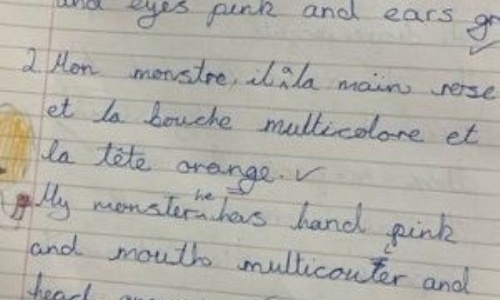 and eyes pink and ears gr
2 Mon monstre, il à la main rose
et la bouche multicolore et
la tête orange. ✓
My monster he has hand pink
and mouth multicouter and
head